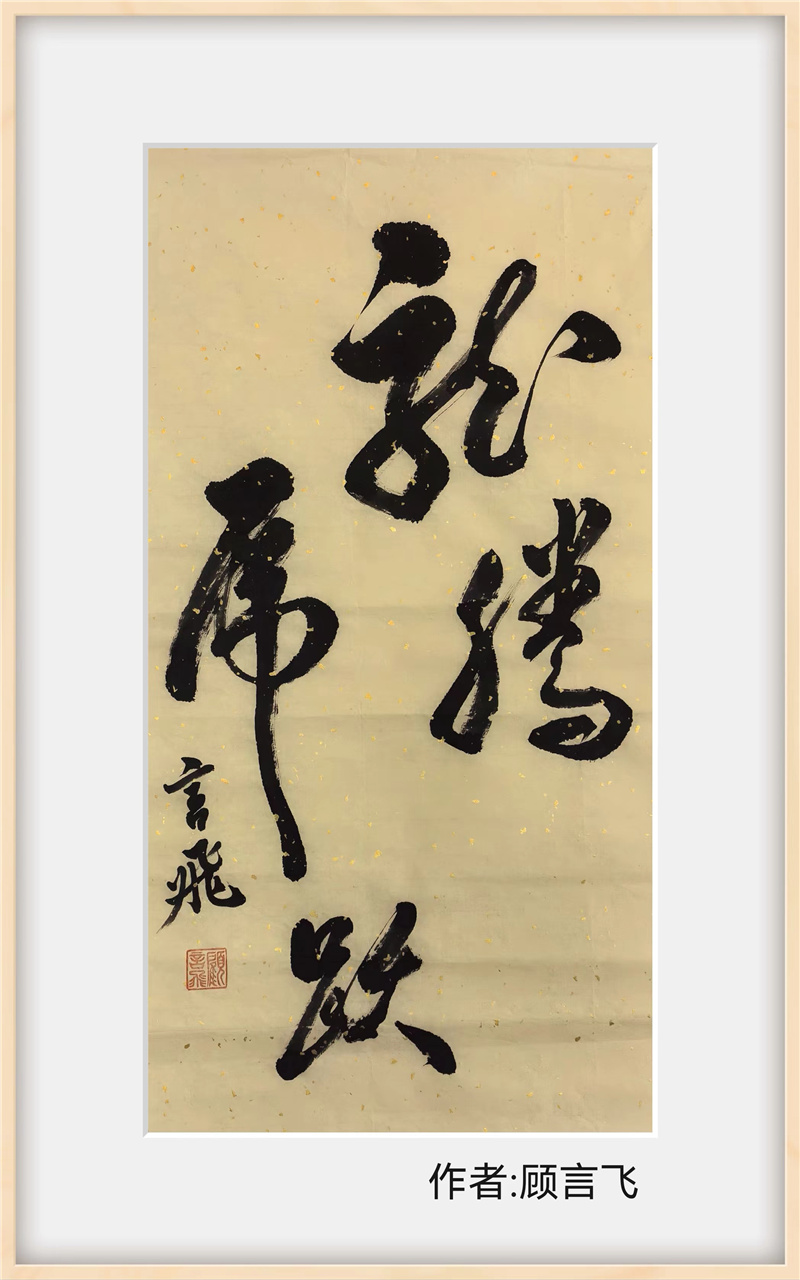 龍騰
虎跃
言飛
顧言飛
作者:顾言飞